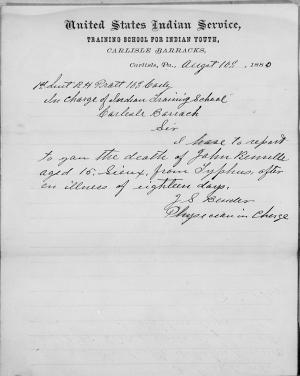 United States Indian Service,
TRAINING SCHOOL FOR INDIAN YOUTH,
CARLISLE BARRACKS,
Carlisle, Pa., August 10th, 1880
1st Lieut R H Pratt 10th Cavly
In Charge of Indian Training School
Carlisle Barrack
Sir
I have to report
to you the death of John Renville
aged 15. Sioux, from Typhus, after
an illness of eighteen days.
Physician in Charge